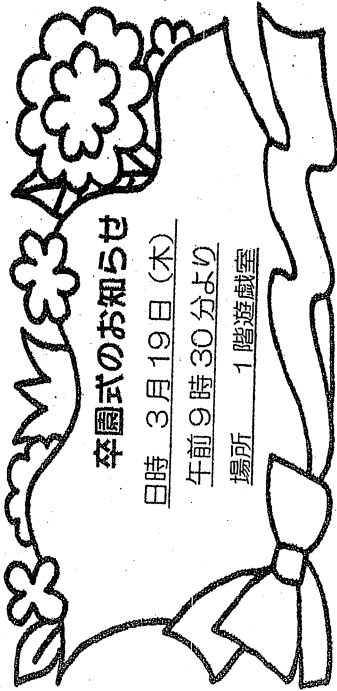 卒園式のお知らせ
日時 3月19日(木)
午前9時30分より
場所 1階遊戯室